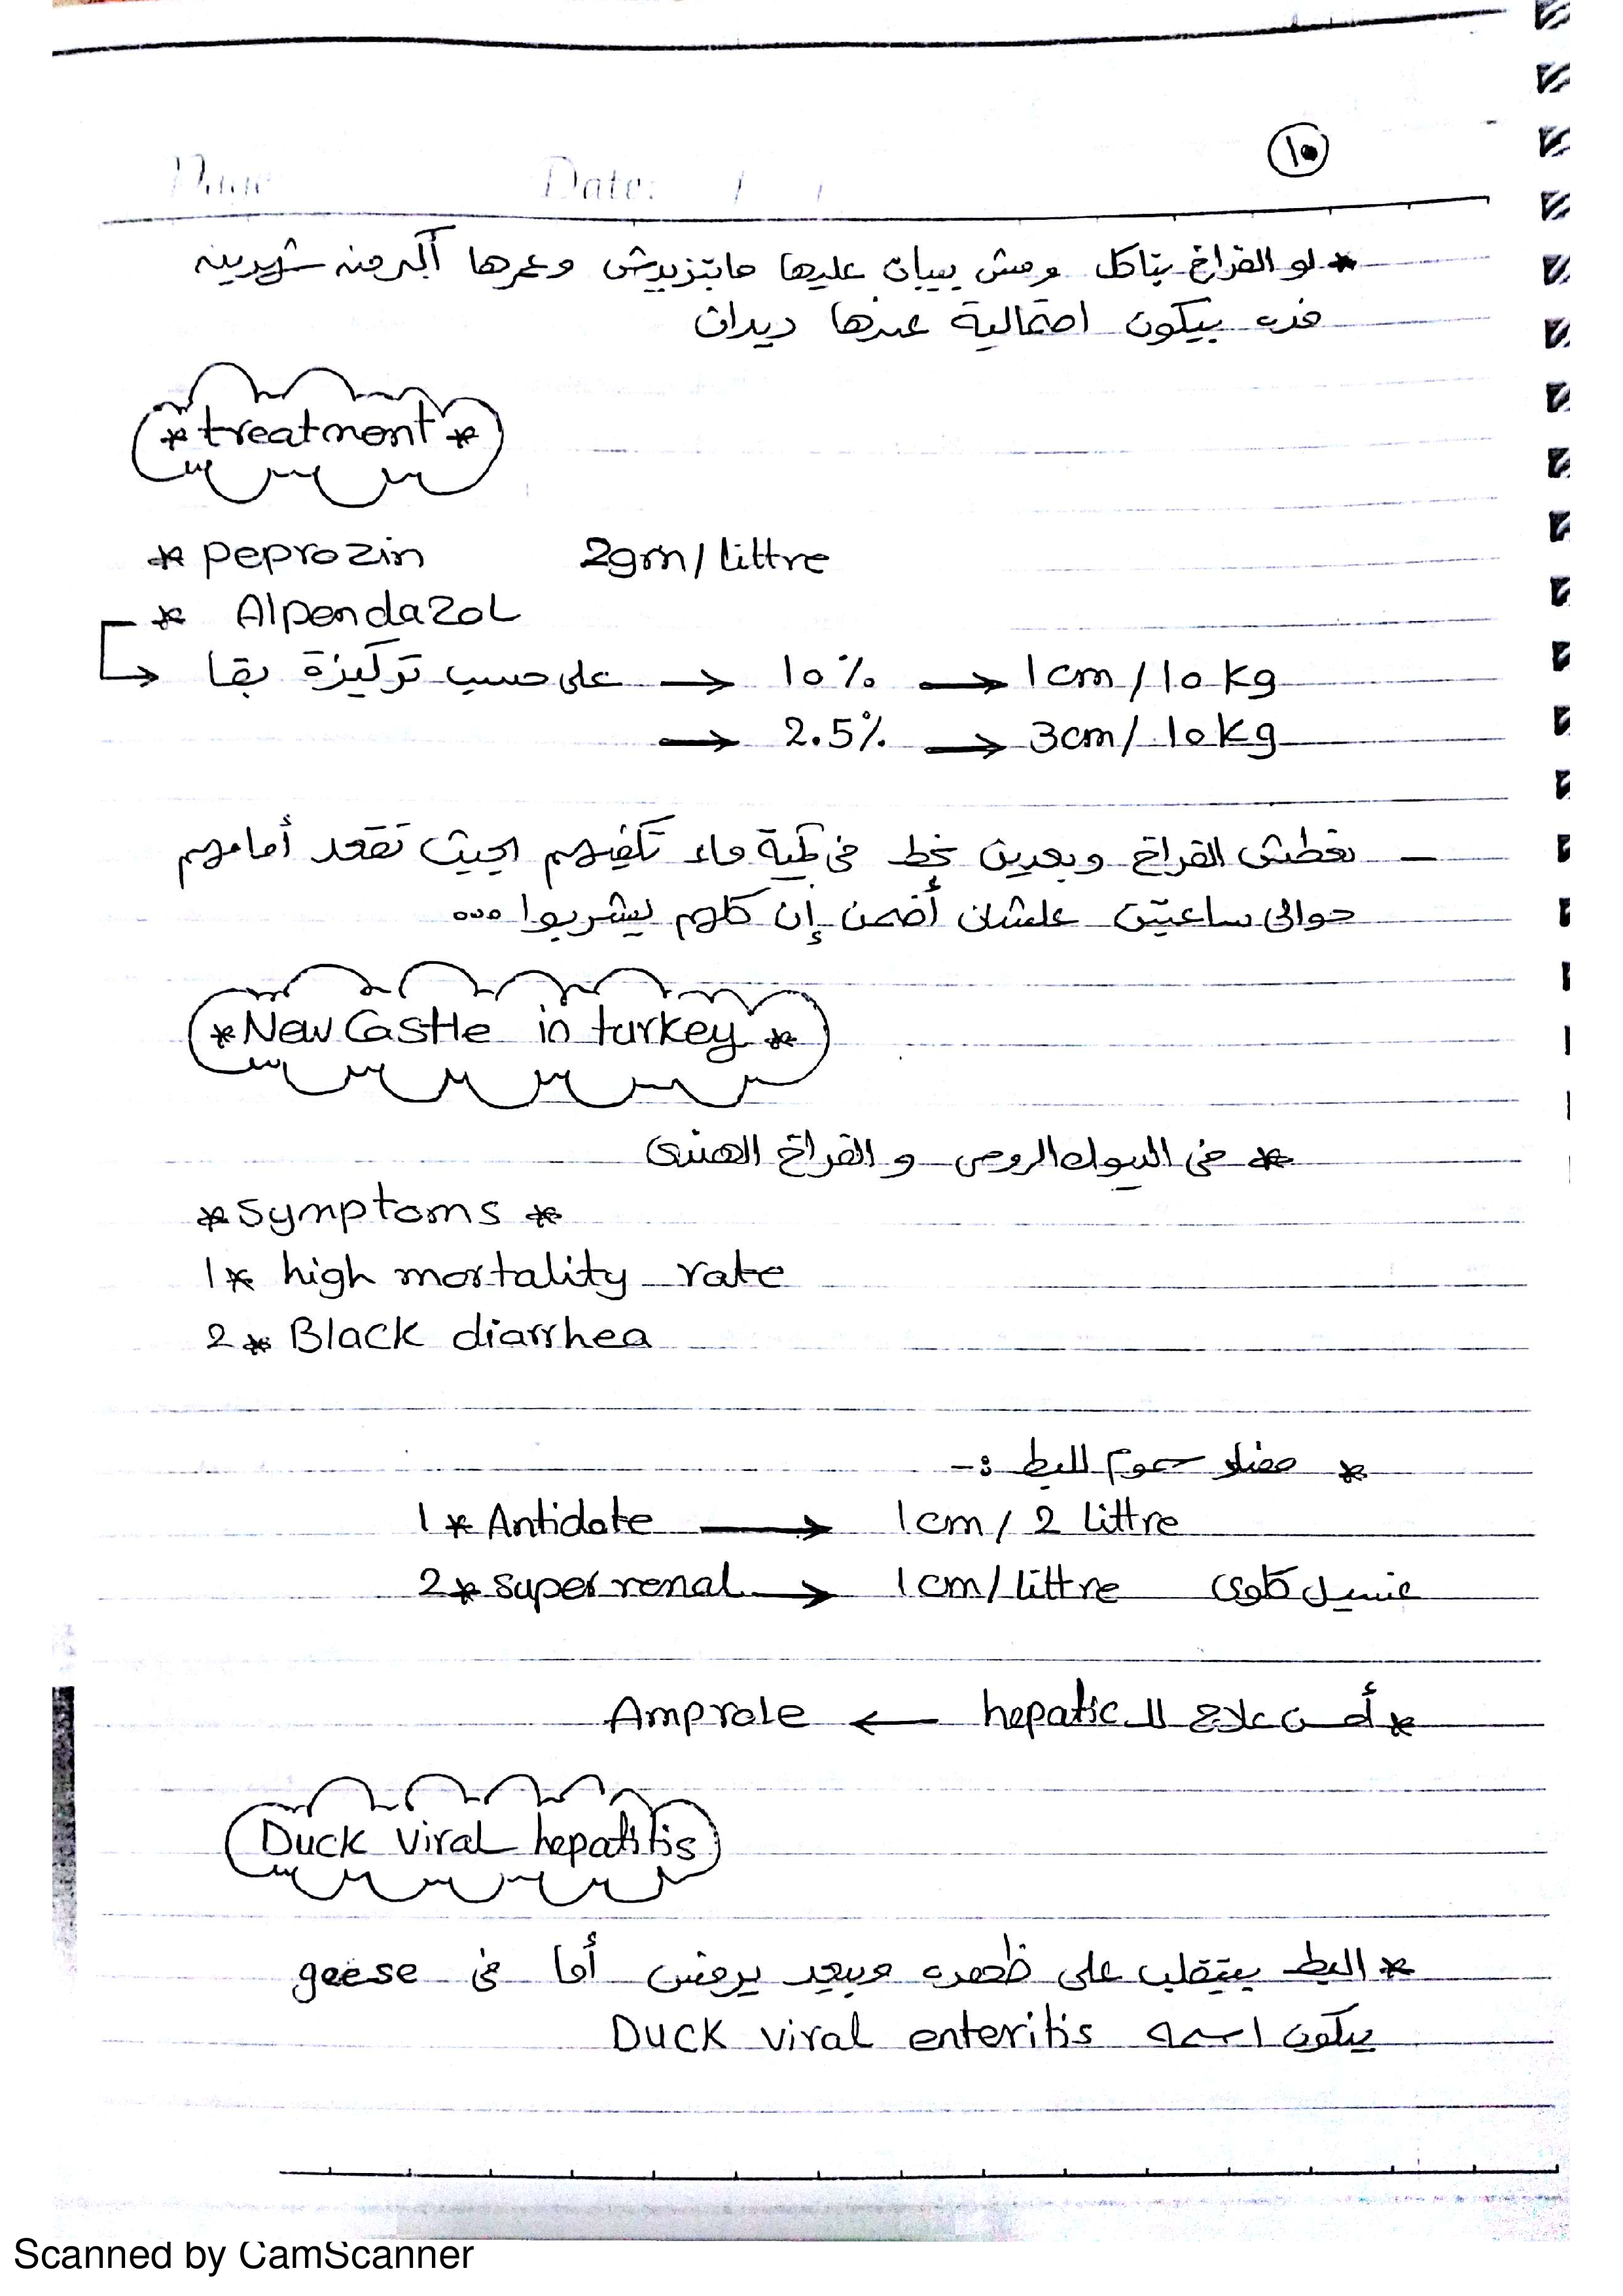 ١٠
Page Date: / /
* لو الفراخ بتاكل ومش بيبان عليها مابتزيدش وعمرها أكبر من شهرين
فده بيكون احتمالية عندها ديدان
* treatment *
* peprozin 2gm/littre
* Alpendazol
على حسب تركيزة بقا → 10% → 1cm/10kg
→ 2.5% → 3cm/10kg
– نعطش الفراخ وبعدين نحط في كمية ماء تكفيهم بحيث تقعد أمامهم
حوالى ساعتين علشان أضمن إن كلهم يشربوا ...
* New Castle in turkey *
* فى الديوك الرومى و الفراخ الهندى
* Symptoms *
1* high mortality rate
2* Black diarrhea
* مضاد سموم للبط :-
1* Antidote → 1cm / 2 littre
2* super renal → 1cm/littre غسيل كلوى
* أحسن علاج للـ hepatic ← Amprole
Duck viral hepatitis
* البط بيتقلب على ظهره وبيعد يرفس أما فى geese
بيكون اسمه Duck viral enteritis
Scanned by CamScanner